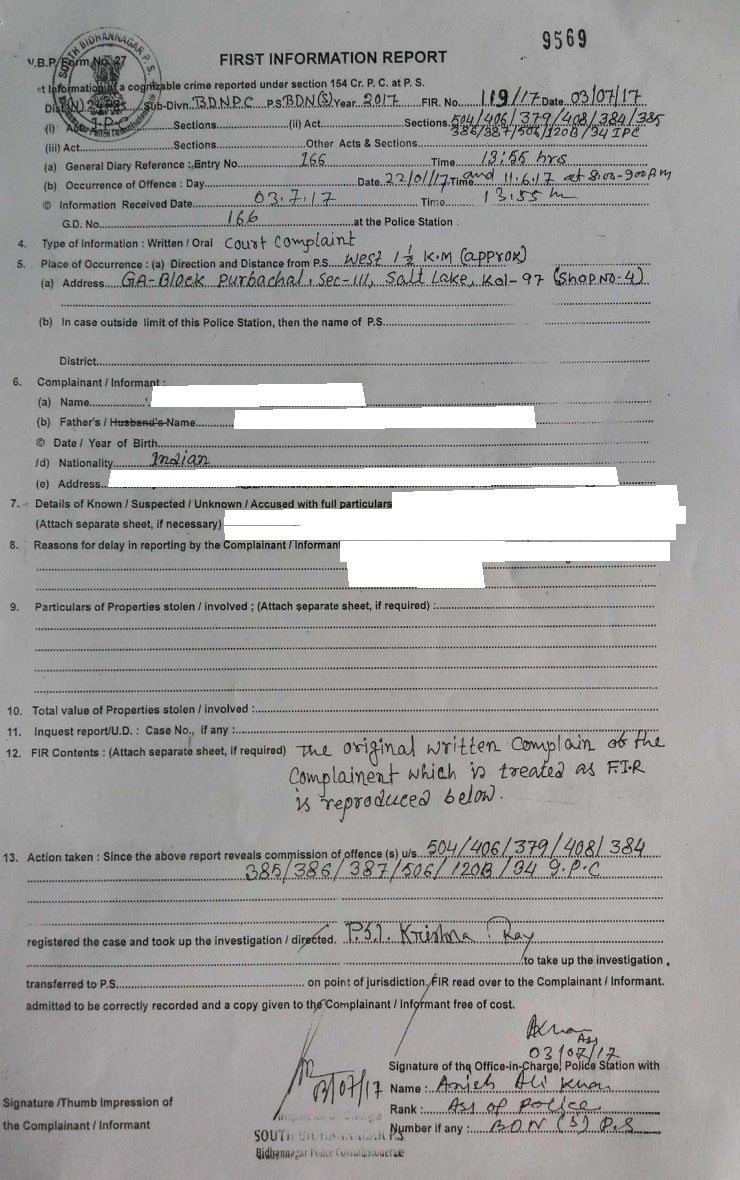 9569
FIRST INFORMATION REPORT
W.B.P. Form No. 27
st Information of a cognizable crime reported under section 154 Cr. P. C. at P. S.
Dist (N) 24 PGS Sub-Divn. BDNPC P.S BDN(S) Year 2017 FIR. No. 119/17 Date 03/07/17
(i) Act I.P.C Sections (ii) Act Sections 504/406/379/408/384/385
385/387/506/120B/34 IPC
(iii) Act Sections Other Acts & Sections
(a) General Diary Reference : Entry No 166 Time 13:55 hrs
(b) Occurrence of Offence : Day Date 22/01/17 Time and 11.6.17 at 8:00-9:00 AM
© Information Received Date 03.7.17 Time 13.55 hr
G.D. No. 166 at the Police Station :
4. Type of information : Written / Oral Court Complaint
5. Place of Occurrence : (a) Direction and Distance from P.S. West 1 ½ K.M (approx)
(a) Address GA-Block Purbachal, Sec-III, Salt Lake, Kol-97 (Shop No-4)
(b) In case outside limit of this Police Station, then the name of P.S.
District
6. Complainant / Informant :
(a) Name
(b) Father's / Husband's Name
© Date / Year of Birth
/d) Nationality Indian
(e) Address
7. Details of Known / Suspected / Unknown / Accused with full particulars
(Attach separate sheet, if necessary)
8. Reasons for delay in reporting by the Complainant / Informant
9. Particulars of Properties stolen / involved ; (Attach separate sheet, if required) :
10. Total value of Properties stolen / involved :
11. Inquest report/U.D. : Case No., if any :
12. FIR Contents : (Attach separate sheet, if required) The original written Complain of the
Complainent which is treated as F.I.R
is reproduced below.
13. Action taken : Since the above report reveals commission of offence (s) u/s 504/406/379/408/384
385/386/387/506/120B/34 I.P.C
registered the case and took up the investigation / directed. P.S.I. Krishna Ray
to take up the investigation,
transferred to P.S. on point of jurisdiction, FIR read over to the Complainant / Informant.
admitted to be correctly recorded and a copy given to the Complainant / Informant free of cost.
ASI
03/07/17
Signature of the Office-in-Charge, Police Station with
03/07/17
Name : Anish Ali Khan
Signature /Thumb Impression of
the Complainant / Informant
Rank : ASI of Police
Number if any : BDN (S) P.S
SOUTH BIDHANNAGAR P.S.
Bidhannagar Police Commissionerate
SOUTH BIDHANNAGAR P.S.